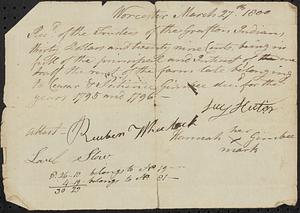 Worcester March 27th 1800
Recd of the Trustees of the Grafton Indians,
thirty Dollars and twenty nine Cents, being in
full of the principal and Interest of the one
half the rent of the farm late belonging
to Cesar & Gimbee decd for the
years 1795 and 1796
Lucy Hector
attest - Reuben Wheelock
her
Hannah X Gimbee
mark
Lovel Stow
$ 26-10 belongs to No 19-
4-19 belongs to No 21-
30 29